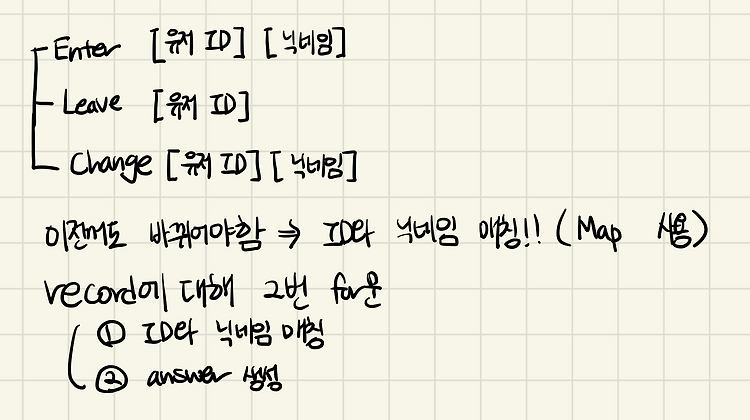 Enter [유저 ID] [닉네임]
Leave [유저 ID]
Change [유저 ID] [닉네임]
이전거도 바뀌어야함 ⇒ ID와 닉네임 매칭!! (Map 사용)
record에 대해 2번 for문
① ID와 닉네임 매칭
② answer 생성